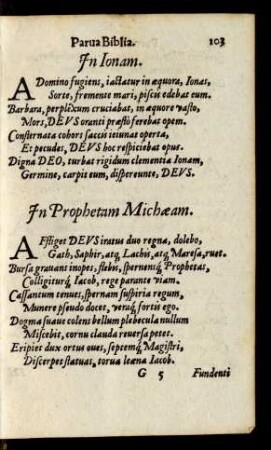 Parua Biblia. 103
In Ionam.
A Domino fugiens, iactatur in æquora, Ionas,
Sorte, fremente mari, piscis edebat eum.
Barbara, perplexum cruciabat, in æquore vasto,
Mors, DEVS oranti præstò ferebat opem.
Consternata cohors saccis ieiunat operta,
Et pecudes, DEVS hoc respiciebat opus.
Digna DEO, turbat rigidum clementia Ionam,
Germine, carpit eum, dispereunte, DEVS.
In Prophetam Michæam.
AFfliget DEVS iratus duo regna, dolebo,
Gath, Saphir, atq; Lachis, atq; Maresa, ruet.
Bursa grauant inopes, flebis, spernentiq; Prophetas,
Colligiturq; Iacob, rege parante viam.
Cassantum tenues, spernam suspiria regum,
Munere pseudo docet, veraq; fortis ego.
Dogma suaue colens bellum plebecula nullum
Miscebit, cornu clauda reuersa petet.
Eripiet dux ortus oues, septemq; Magistri,
Discerpet statuas, torua leæna Iacob.
G 5 Fundenti